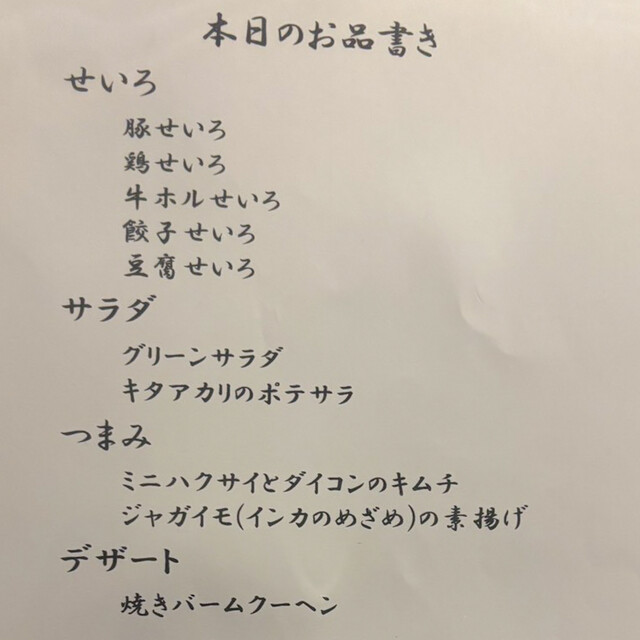 本日のお品書き
せいろ
豚せいろ
鶏せいろ
牛ホルせいろ
餃子せいろ
豆腐せいろ
サラダ
グリーンサラダ
キタアカリのポテサラ
つまみ
ミニハクサイとダイコンのキムチ
ジャガイモ(インカのめざめ)の素揚げ
デザート
焼きバームクーヘン